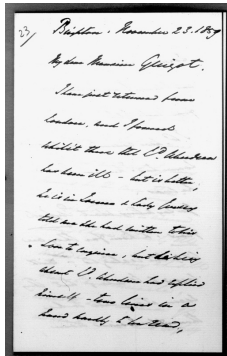 23/
Brighton. November 23. 1859
My dear Monsieur Guizot.
I have just returned from
London, and I found
whilst there that Ld. Aberdeen
has been ill - but is better,
he is in London & Lady
told me she had written to his
son to enquire, but
Ld. Aberdeen had replied
himself - two lines in a
hand hardly to be read,